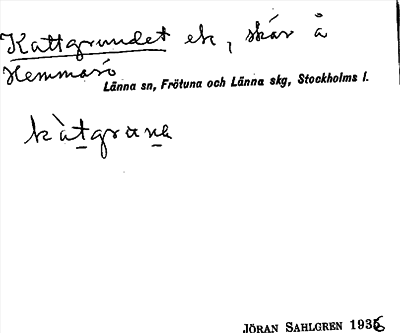 Kattgrundet ek, skär å
Hemmarö
Länna sn, Frötuna och Länna skg, Stockholms l.
kàtgrunẹ
JÖRAN SAHLGREN 1936